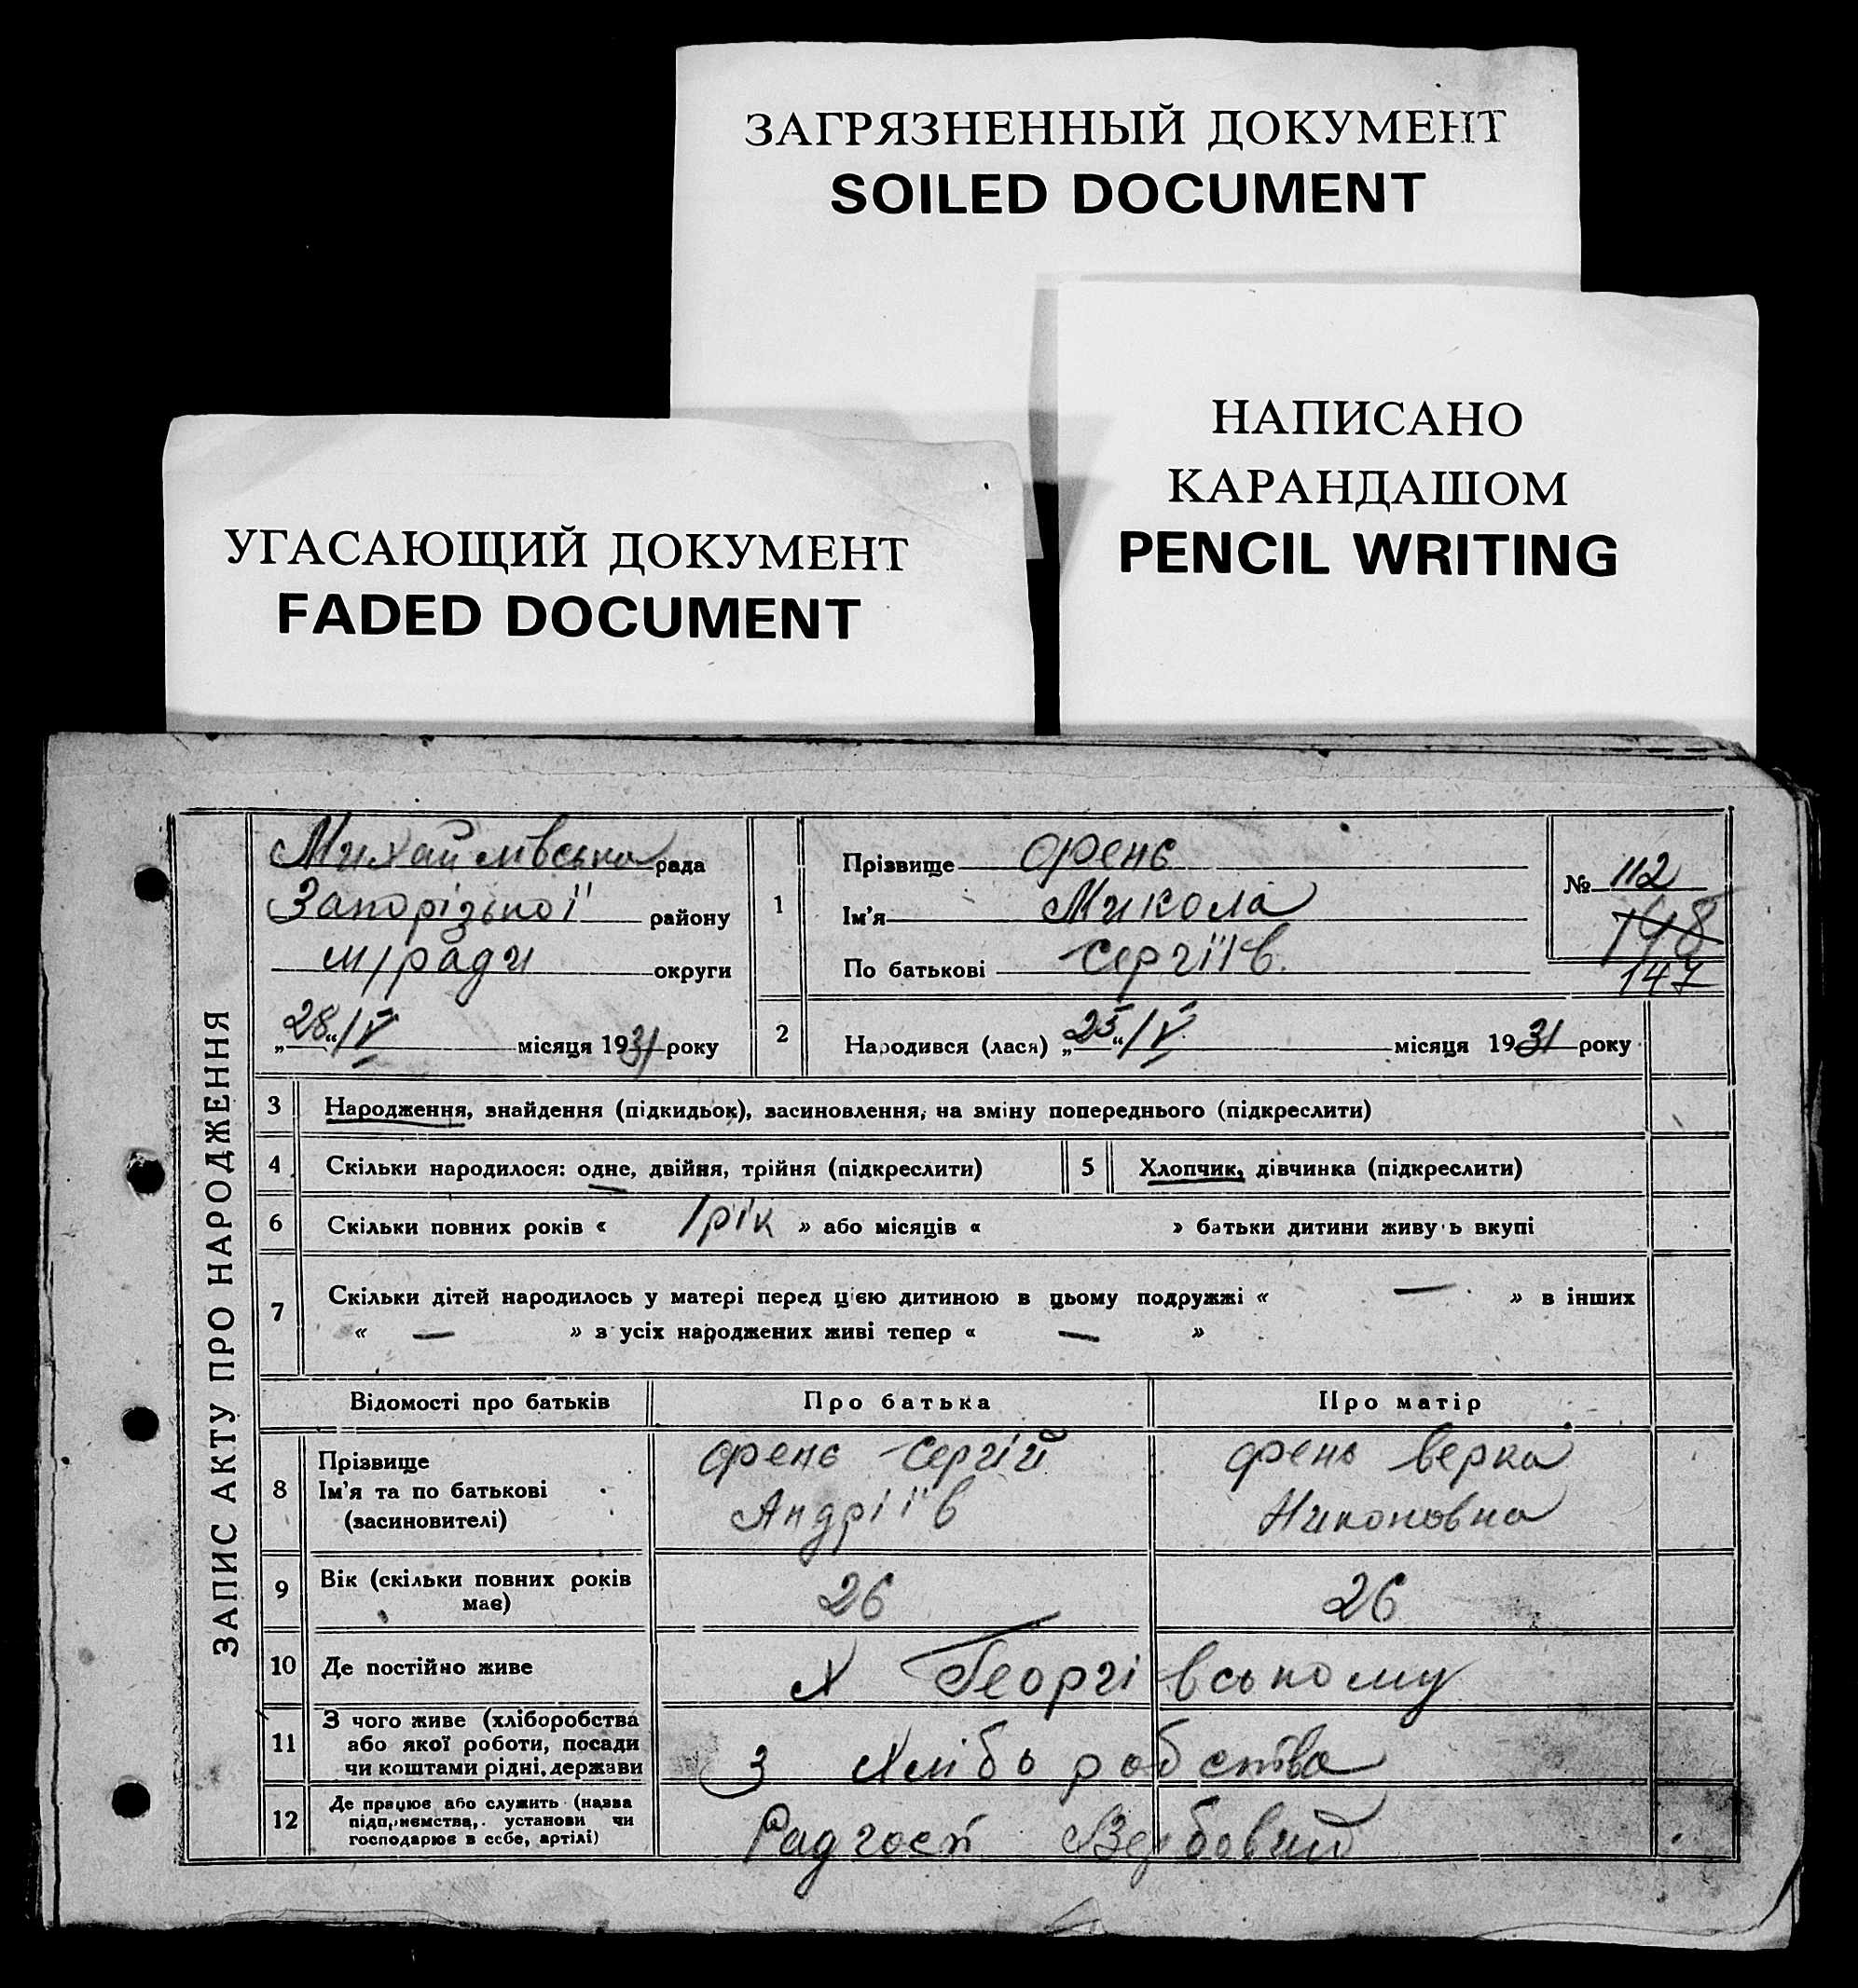 ЗАГРЯЗНЕННЫЙ ДОКУМЕНТ
SOILED DOCUMENT
НАПИСАНО
КАРАНДАШОМ
PENCIL WRITING
УГАСАЮЩИЙ ДОКУМЕНТ
FADED DOCUMENT
ЗАПИС АКТУ ПРО НАРОДЖЕННЯ
Михайлівська рада
Запорізької району
м/ради округи
„28“/V місяця 1931 року
1
Прізвище Фень
Ім'я Микола
По батькові Сергіїв.
№ 112
148
147
2 Народився (лася) „25“/V місяця 1931 року
3 Народження, знайдення (підкидьок), засиновлення, на зміну попереднього (підкреслити)
4 Скільки народилося: одне, двійня, трійня (підкреслити) 5 Хлопчик, дівчинка (підкреслити)
6 Скільки повних років « 1 рік » або місяців « » батьки дитини живуть вкупі
7 Скільки дітей народилось у матері перед цією дитиною в цьому подружжі « — » в інших
« — » з усіх народжених живі тепер « — »
Відомості про батьків Про батька Про матір
8 Прізвище
Ім'я та по батькові
(засиновителі)
Фень Сергій
Андріїв
Фень Верка
Никоновна
9 Вік (скільки повних років має) 26 26
10 Де постійно живе Х Георгівському
11 З чого живе (хліборобства
або якої роботи, посади
чи коштами рідні, держави
З Хліборобства
12 Де працює або служить (назва
підприємства, установи чи
господарює в себе, артілі)
Радгосп Вербовий